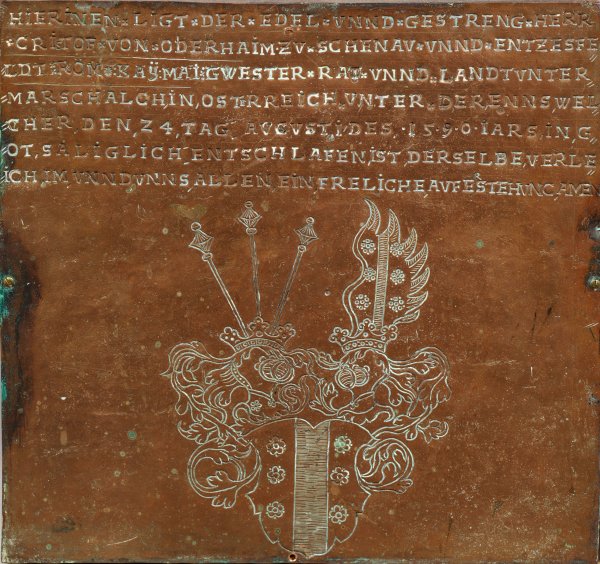 HIERINEN × LIGT × DER × EDEL × VNND × GESTRENG × HERR
× CRITOF × VON × ODERHAIM × ZV × SCHENAV × VNND × ENTZESFE
LDT × RÖM × KAÿ × MAI × GWESTER × RAT × VNND × LANDTVNTER
MARSCHALCH IN, OSTERREICH VNTER DER ENNS WEL
CHER, DEN, 24, TAG, AVGVSTI, DES, ·1·5·9·0· IARS, IN, G
OT, SÄLIGLICH ENTSCHLAFEN, IST, DERSELBE, VERLE
ICH, IM, VNND VNNS, ALLEN, EIN FRELICHE AVFESTEHVNG, AMEN